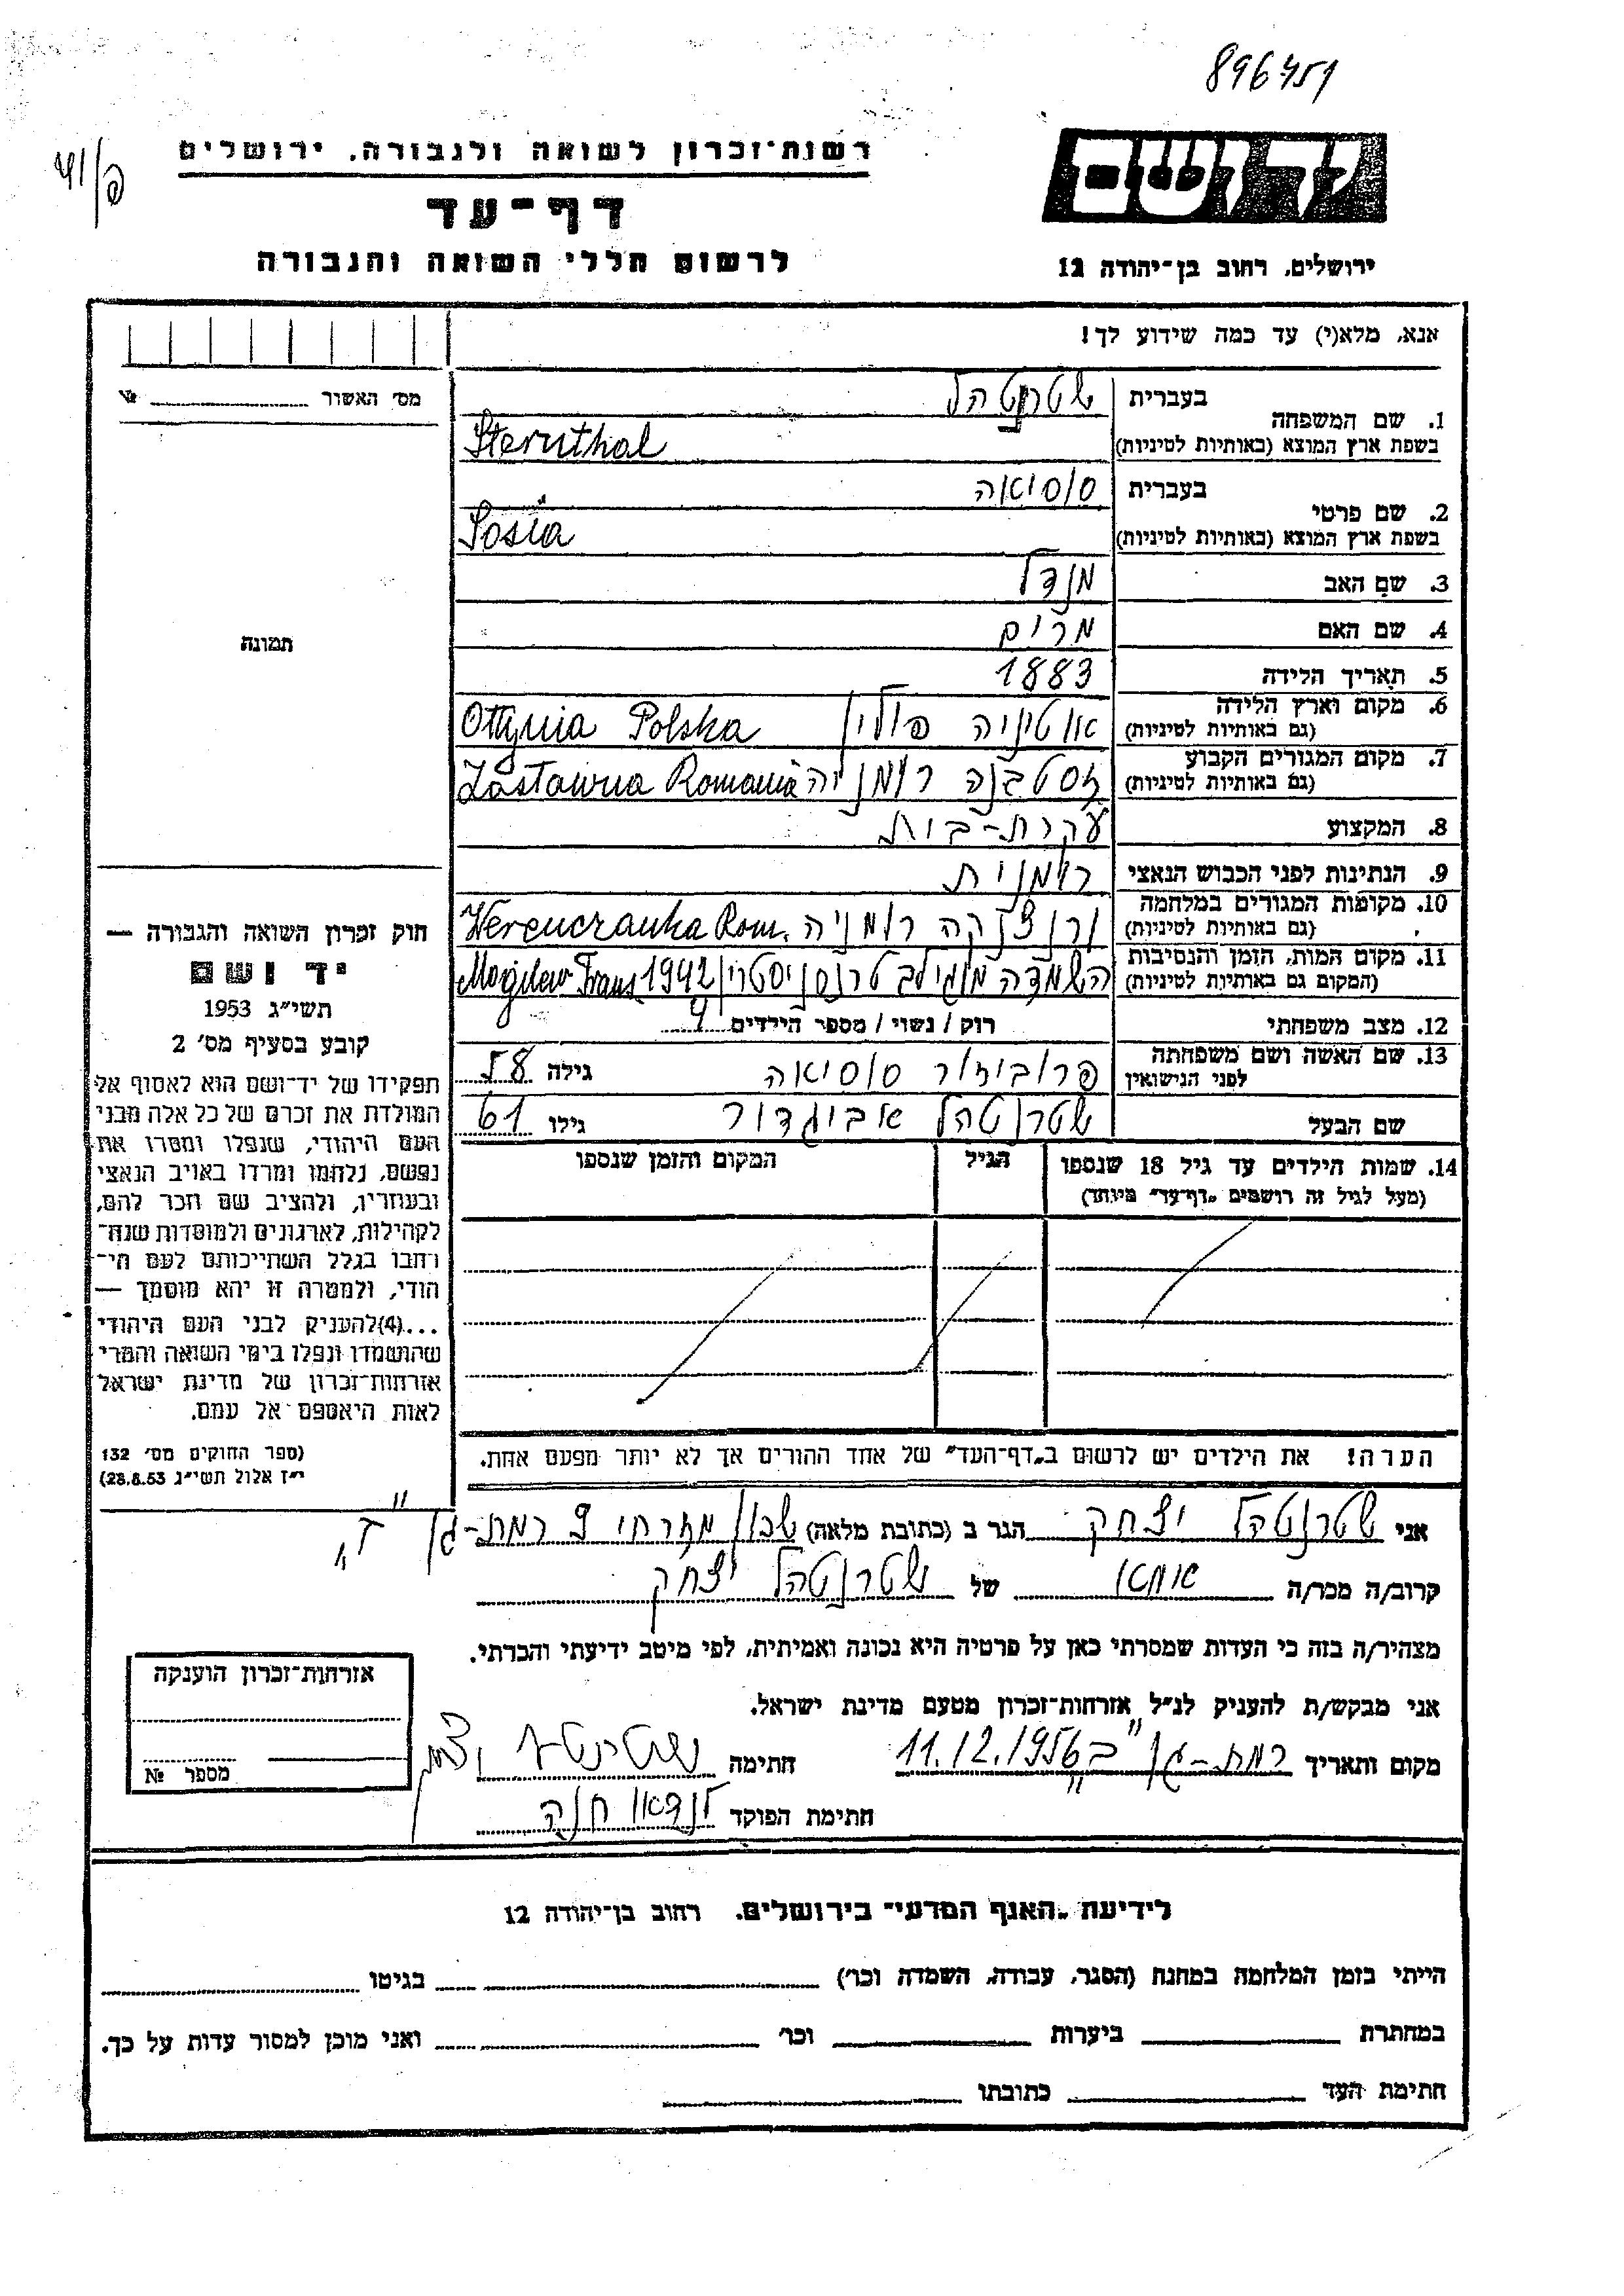 896451
רשות-זכרון לשואה ולגבורה, ירושלים
דף-עד
לרשום חללי השואה והגבורה
יד ושם
ירושלים, רחוב בן-יהודה 12
אנא, מלא(י) עד כמה שידוע לך!
מס׳ האשור № 
1. שם המשפחה בעברית שטרנטהל
בשפת ארץ המוצא (באותיות לטיניות) Sternthal
2. שם פרטי בעברית סוסיאה
בשפת ארץ המוצא (באותיות לטיניות) Sosia
3. שם האב מנדל
4. שם האם מרים
5. תאריך הלידה 1883
6. מקום וארץ הלידה (גם באותיות לטיניות) אוטיניה פולין Ottynia Polska
7. מקום המגורים הקבוע (גם באותיות לטיניות) זסטבנה רומניה Zastawna Romania
8. המקצוע עקרת-בית
9. הנתינות לפני הכבוש הנאצי רומנית
10. מקומות המגורים במלחמה (גם באותיות לטיניות) ורנצ'נקה רומניה Werenczanka Rom.
11. מקום המות, הזמן והנסיבות (המקום גם באותיות לטיניות) השמדה מוגילב טרנסניסטרין 1942 Mogilew Trans.
12. מצב משפחתי רוק / נשוי / מספר הילדים 4
13. שם האשה ושם משפחתה לפני הנישואין פרוביזור סוסיאה גילה 58
שם הבעל שטרנטהל אביגדור גילו 61
14. שמות הילדים עד גיל 18 שנספו הגיל המקום והזמן שנספו
(מעל לגיל זה רושמים „דף-עד״ מיוחד)
הערה! את הילדים יש לרשום ב„דף-העד״ של אחד ההורים אך לא יותר מפעם אחת.
תמונה
חוק זכרון השואה והגבורה —
יד ושם
תשי״ג 1953
קובע בסעיף מס׳ 2
תפקידו של יד-ושם הוא לאסוף אל
המולדת את זכרם של כל אלה מבני
העם היהודי, שנפלו ומסרו את
נפשם, נלחמו ומרדו באויב הנאצי
ובעוזריו, ולהציב שם וזכר להם,
לקהילות, לארגונים ולמוסדות שנח-
רבו בגלל השתייכותם לעם הי-
הודי, ולמטרה זו יהא מוסמך —
...(4)להעניק לבני העם היהודי
שהושמדו ונפלו בימי השואה והמרי
אזרחות-זכרון של מדינת ישראל
לאות היאספם אל עמם.
(ספר החוקים מס׳ 132
י״ז אלול תשי״ג 28.8.53)
אני שטרנטהל יצחק הגר ב (כתובת מלאה) שכון מזרחי רמת-גן
קרוב/ה מכר/ה של שטרנטהל יצחק
מצהיר/ה בזה כי העדות שמסרתי כאן על פרטיה היא נכונה ואמיתית, לפי מיטב ידיעתי והכרתי.
אני מבקש/ת להעניק לנ״ל אזרחות-זכרון מטעם מדינת ישראל.
מקום ותאריך רמת-גן ב 11.12.1956 חתימה
חתימת הפוקד לנדאו חנה
אזרחות-זכרון הוענקה
מספר №
לידיעת „האגף המדעי״ בירושלים. רחוב בן-יהודה 12
הייתי בזמן המלחמה במחנה (הסגר, עבודה, השמדה וכו׳) בגיטו
במחתרת ביערות וכו׳ ואני מוכן למסור עדות על כך.
חתימת העד כתובתו